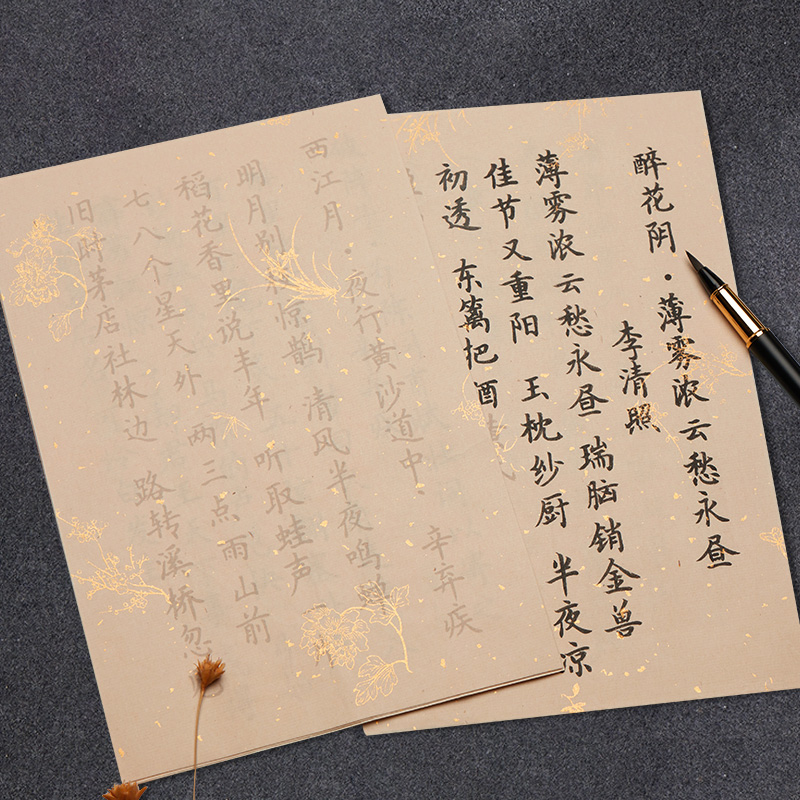 醉花阴·薄雾浓云愁永昼
李清照
薄雾浓云愁永昼 瑞脑销金兽
佳节又重阳 玉枕纱厨 半夜凉
初透 东篱把酒
西江月·夜行黄沙道中·
辛弃疾
明月别枝惊鹊 清风半夜鸣
稻花香里说丰年 听取蛙声
七八个星天外 两三点雨山前
旧时茅店社林边 路转溪桥忽